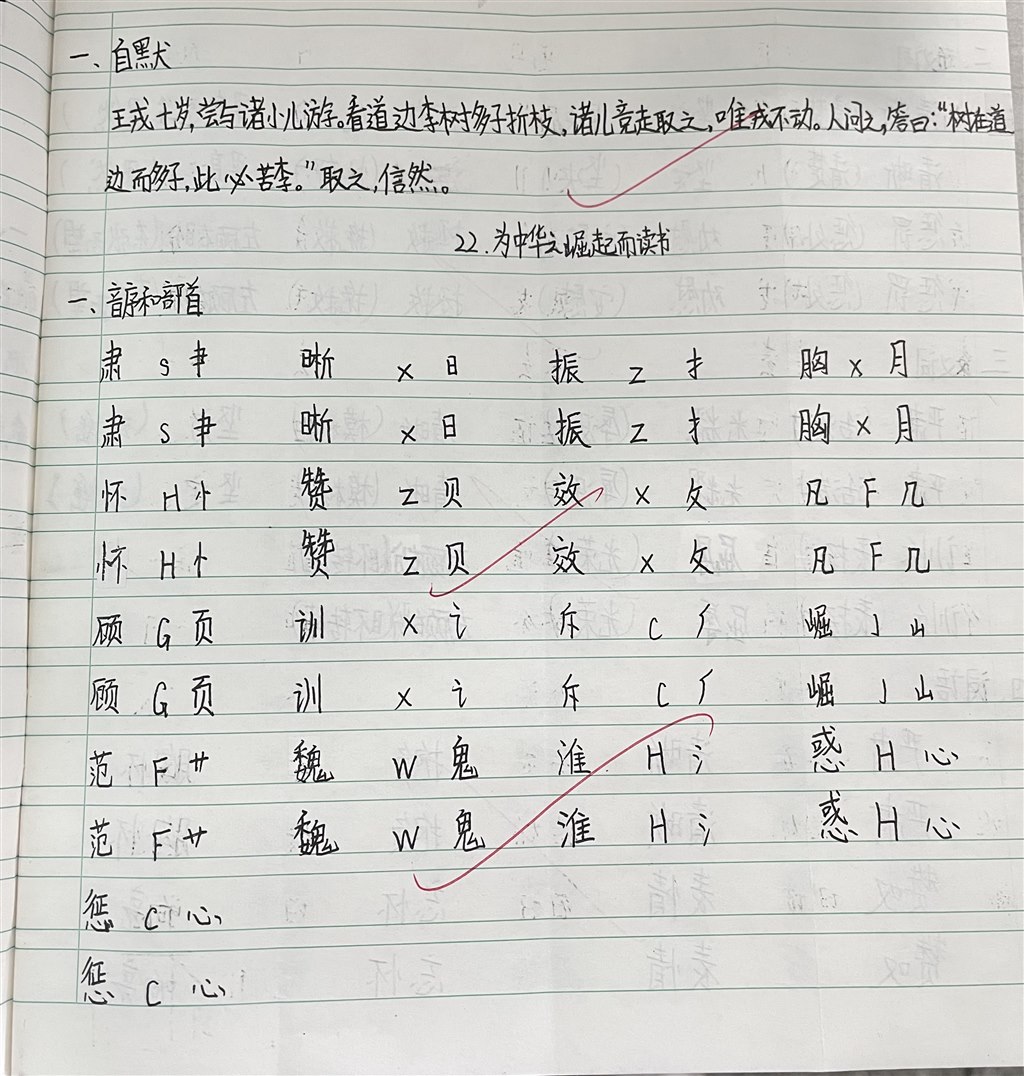 一、自默
王戎七岁,尝与诸小儿游。看道边李树多子折枝,诸儿竞走取之,唯戎不动。人问之,答曰:“树在道
边而多子,此必苦李。”取之,信然。
22.为中华之崛起而读书
一、音序和部首
肃 S 肀 晰 X 日 振 Z 扌 胸 X 月
肃 S 肀 晰 X 日 振 Z 扌 胸 X 月
怀 H 忄 赞 Z 贝 效 X 攵 凡 F 几
怀 H 忄 赞 Z 贝 效 X 攵 凡 F 几
顾 G 页 训 X 讠 斥 C 厂 崛 J 山
顾 G 页 训 X 讠 斥 C 厂 崛 J 山
范 F 艹 魏 W 鬼 淮 H 氵 惑 H 心
范 F 艹 魏 W 鬼 淮 H 氵 惑 H 心
惩 C 心
惩 C 心